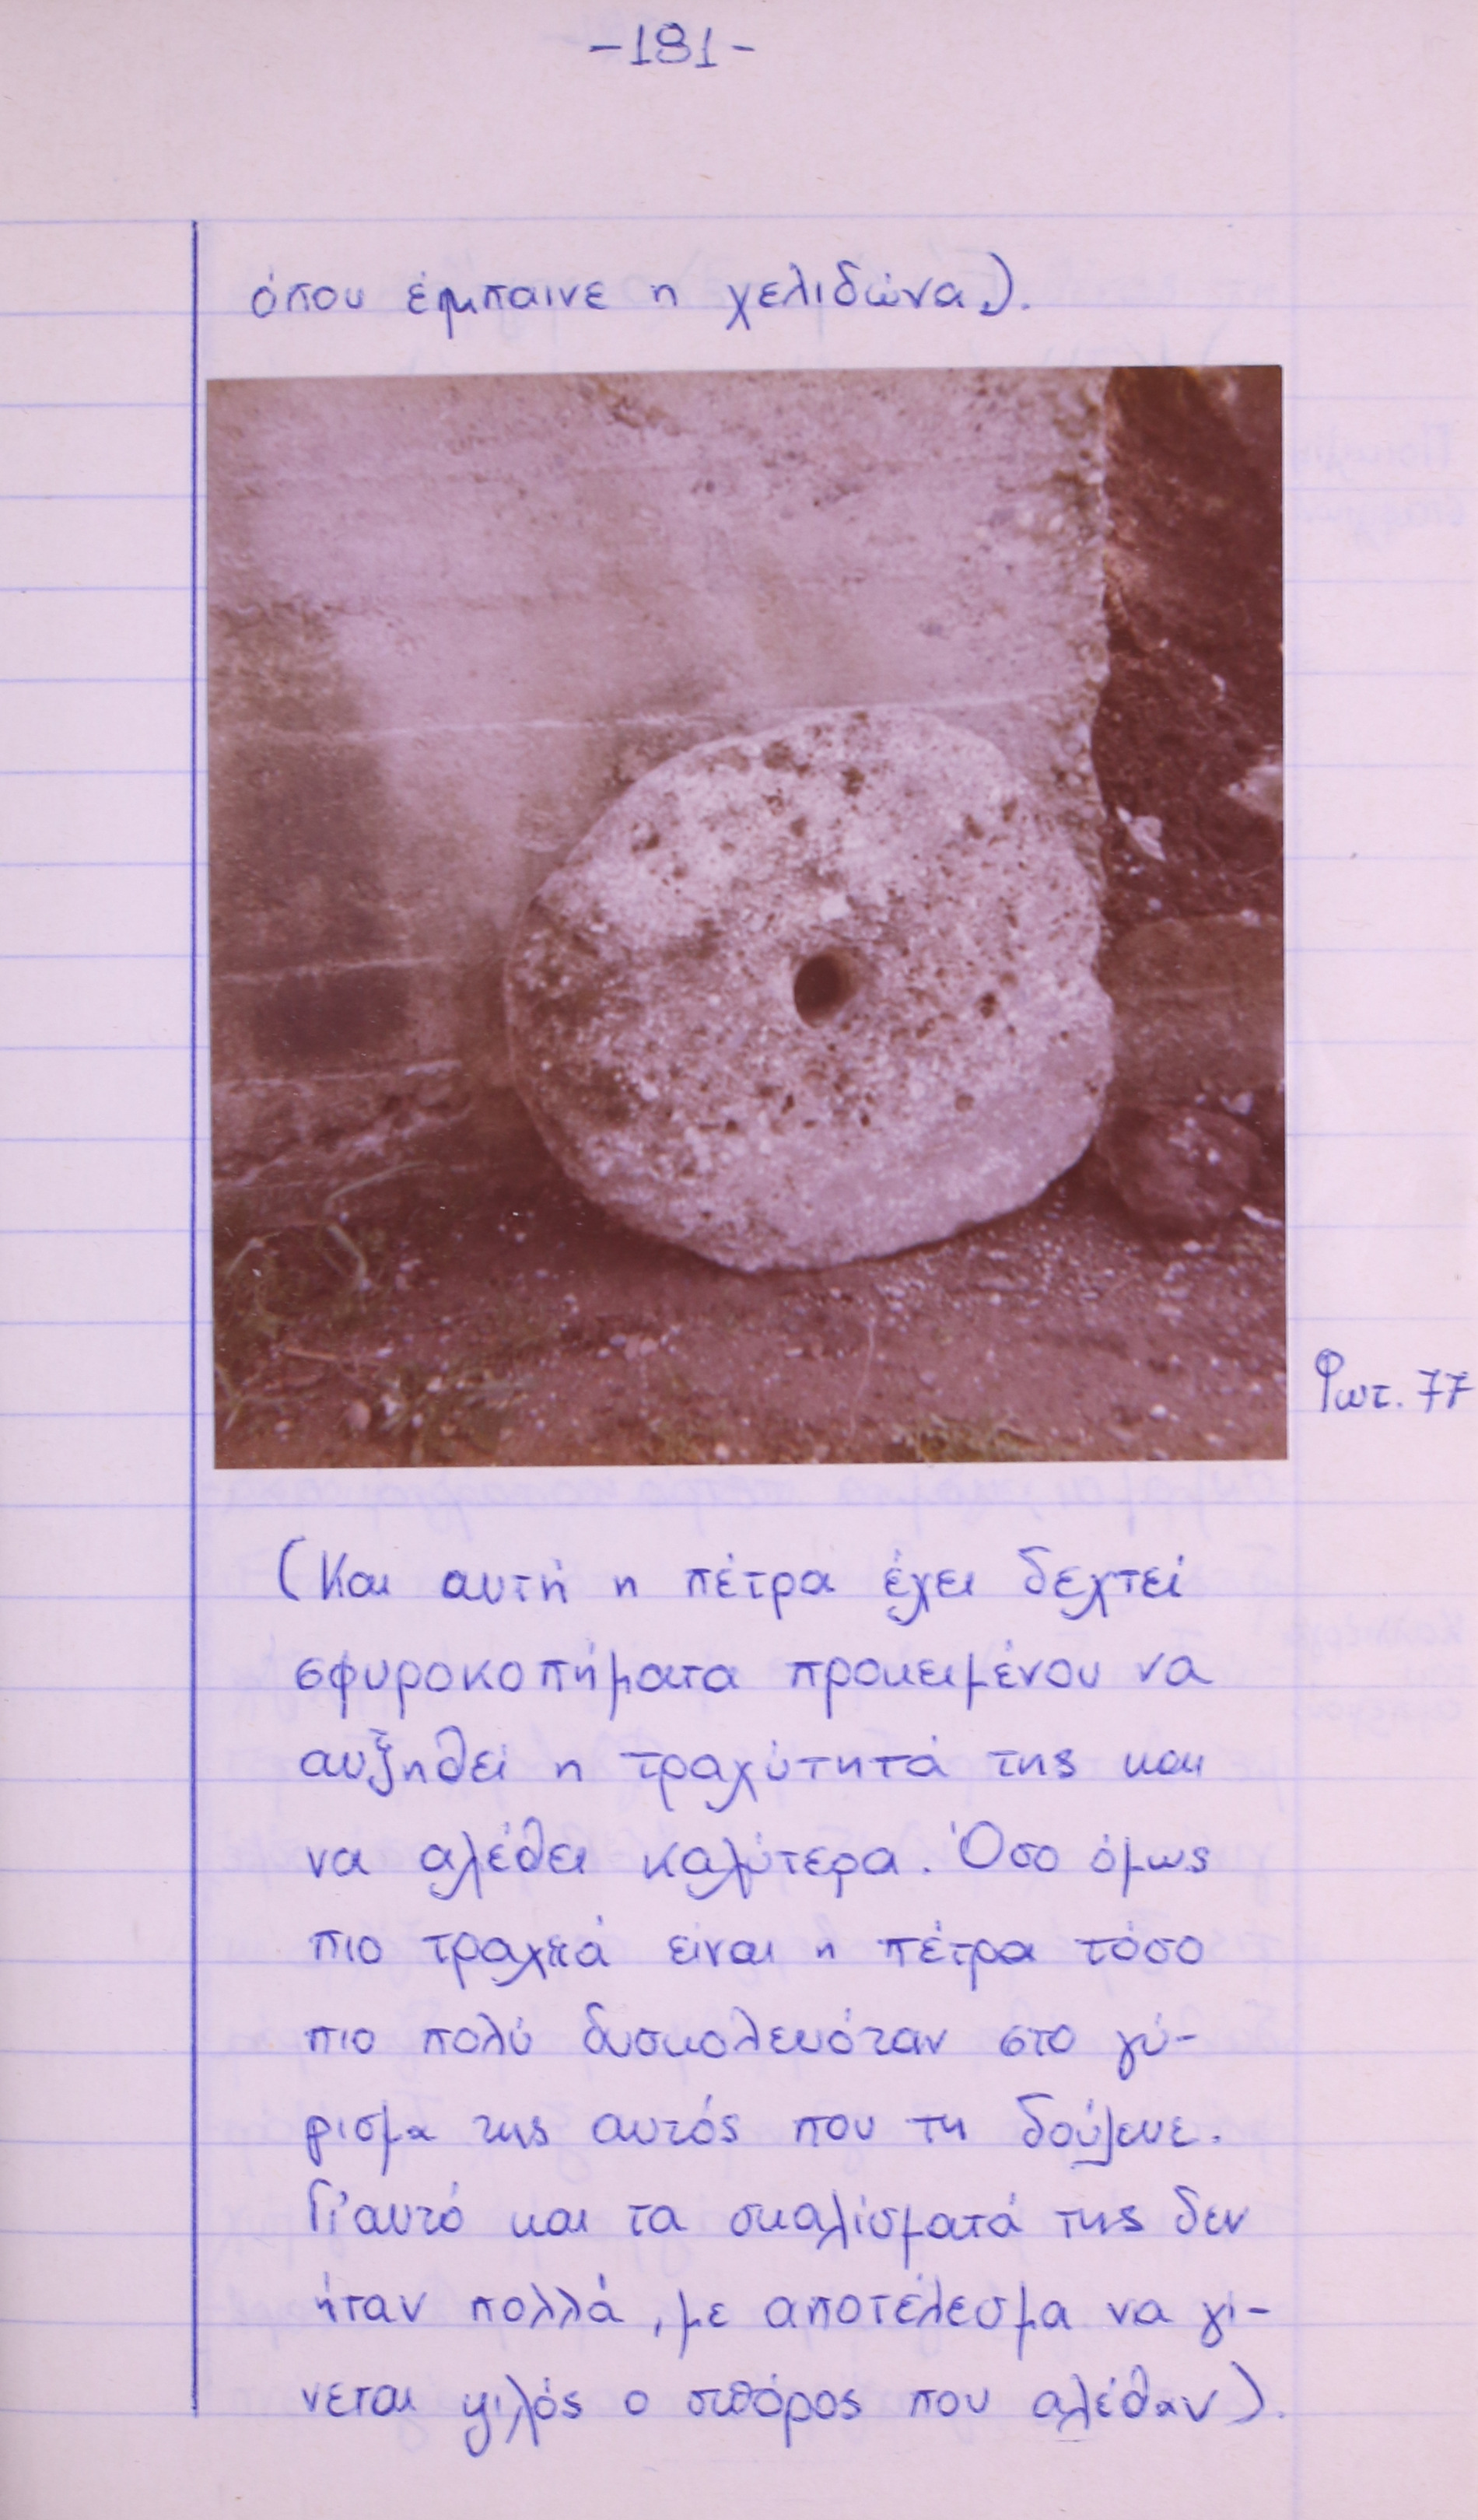 -181-
όπου έμπαινε η χελιδώνα).
Φωτ. 77
(Και αυτή η πέτρα έχει δεχτεί
σφυροκοπήματα προκειμένου να
αυξηθεί η τραχύτητά της και
να αλέθει καλύτερα. Όσο όμως
πιο τραχειά είναι η πέτρα τόσο
πιο πολύ δυσκολευόταν στο γύ-
ρισμα της αυτός που τη δούλευε.
Γι'αυτό και τα σκαλίσματά της δεν
ήταν πολλά, με αποτέλεσμα να γί-
νεται ψιλός ο σπόρος που αλέθαν).